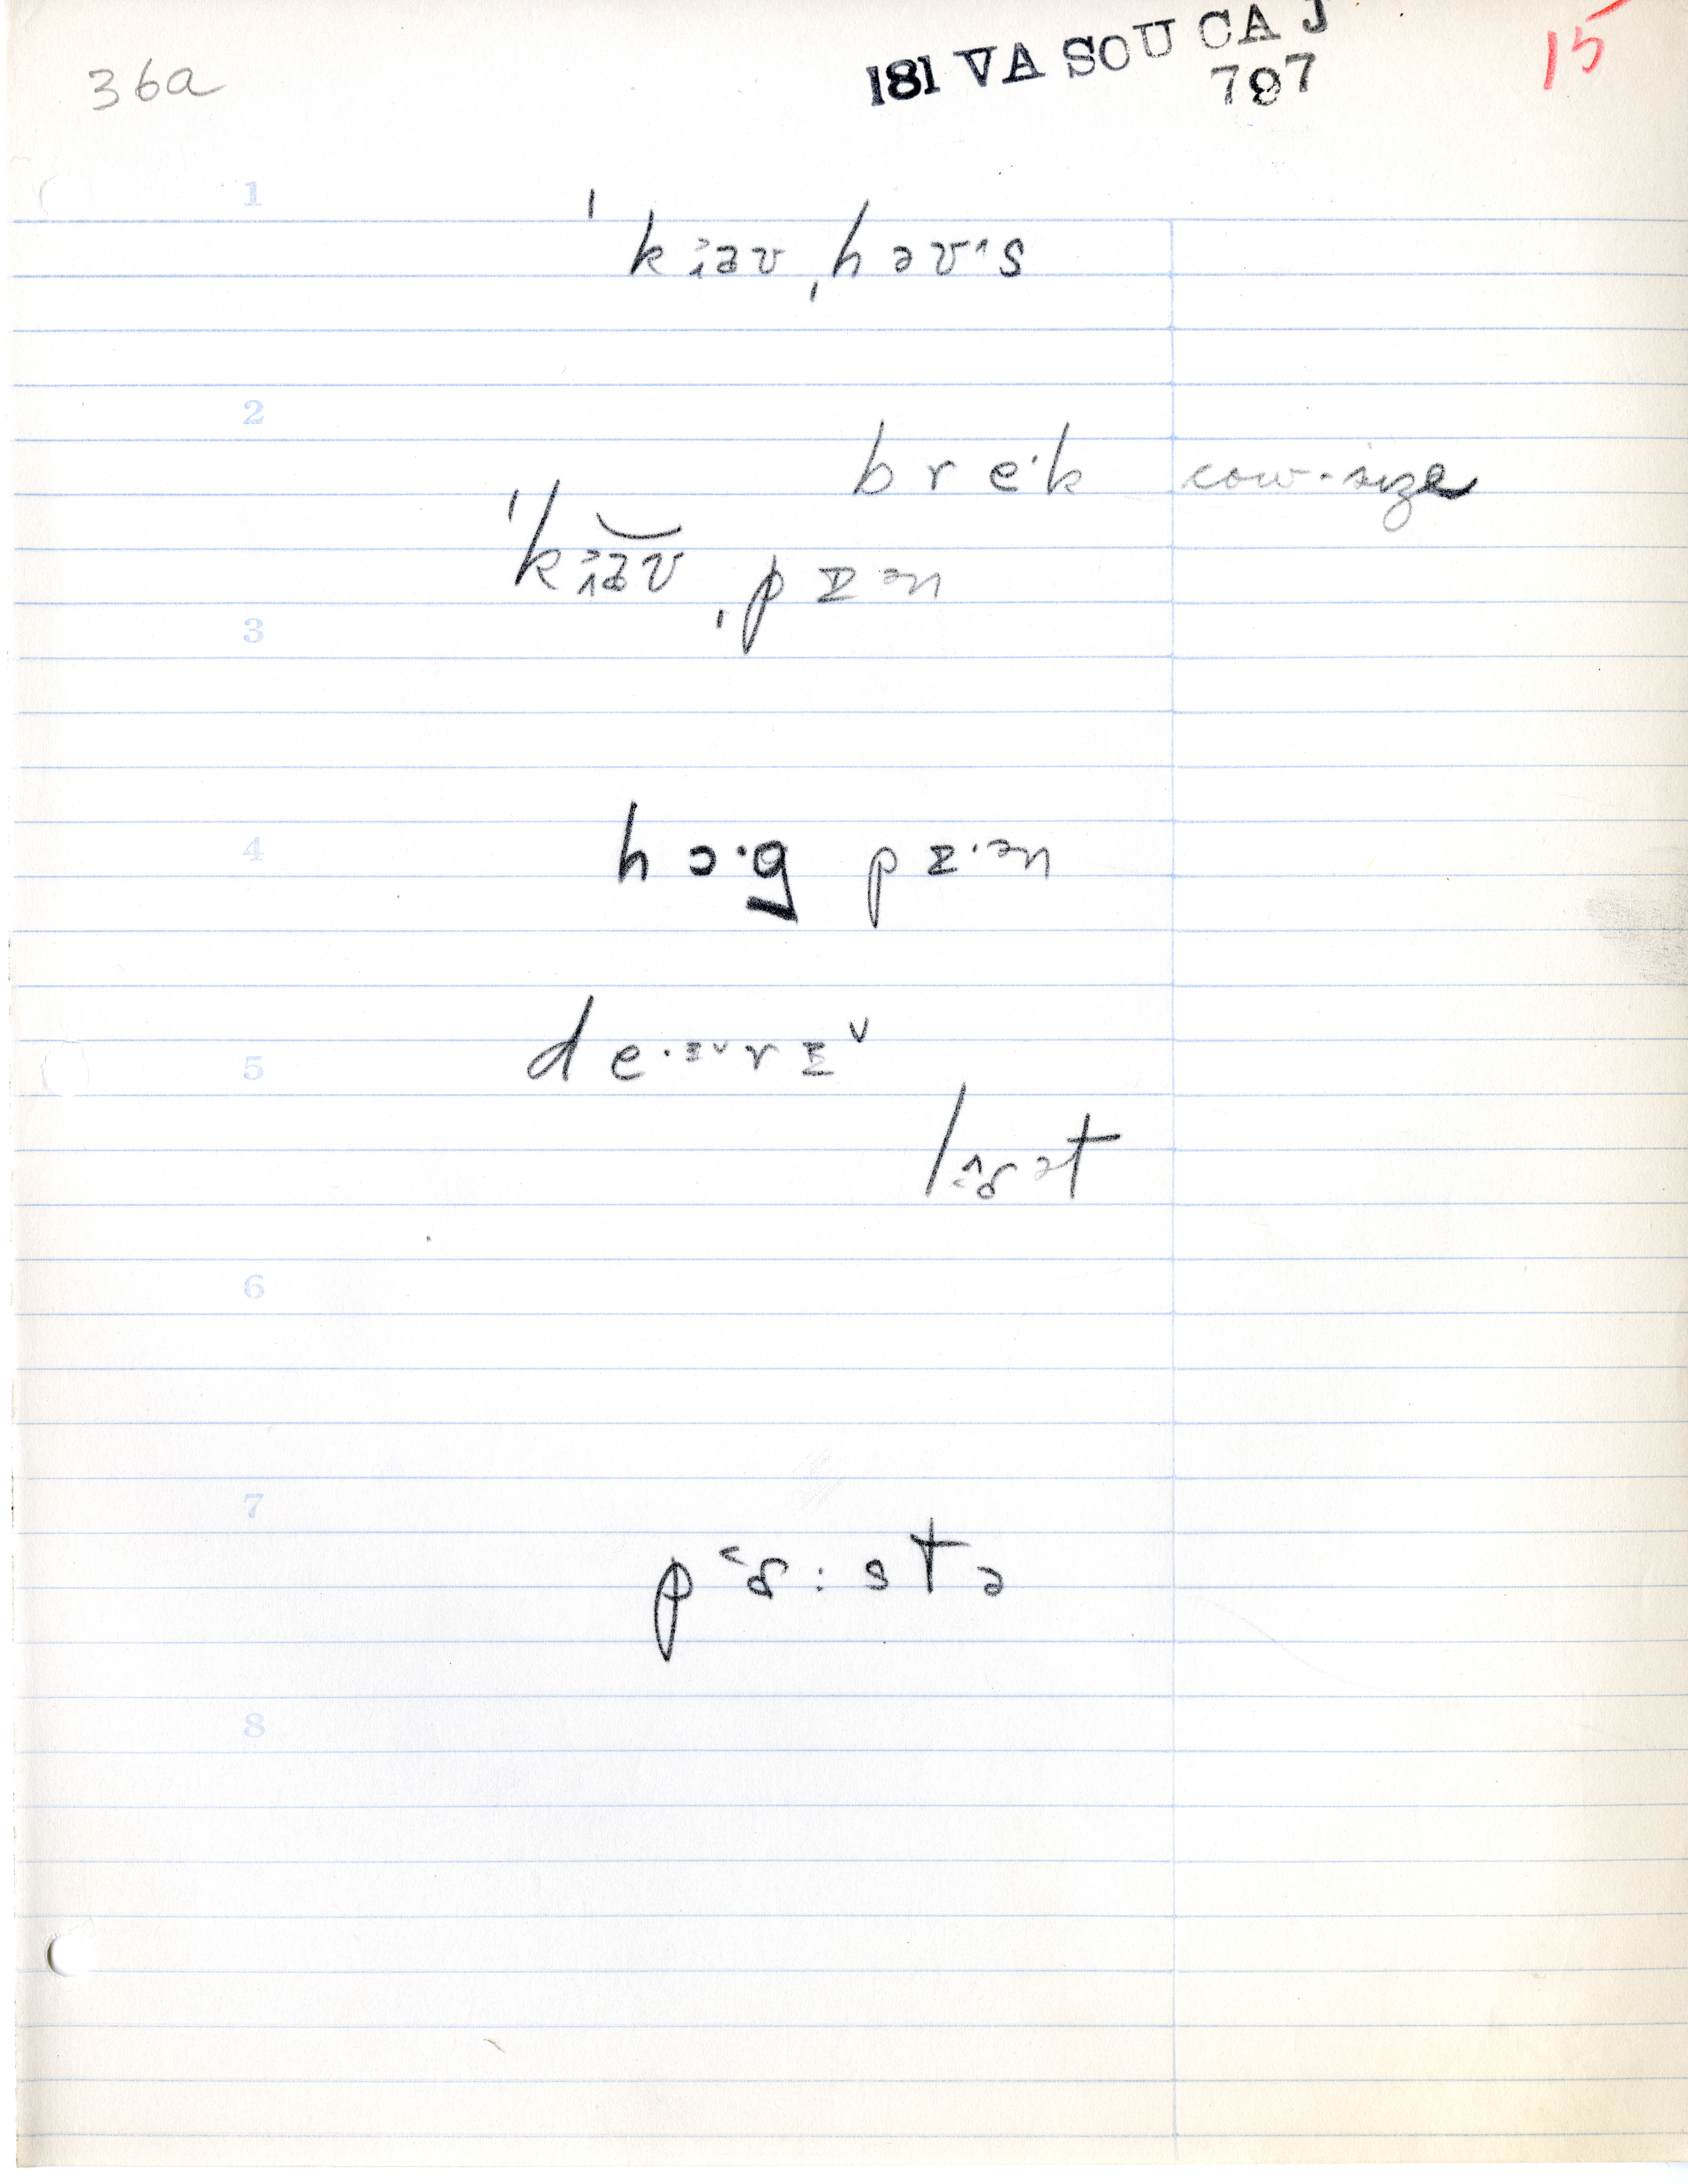 36a
181 VA SOU CA J
797
15
1
ˈkɪ̯əʊˌhəʊ˄s
2
bre·k cow-size
ˈkɪ̯əʊˌpɪən
3
4
hɔ·g pɪ·ən
5
de·ɪ˅rɪ˅
lɑət
6
7
pɑ:stə
8